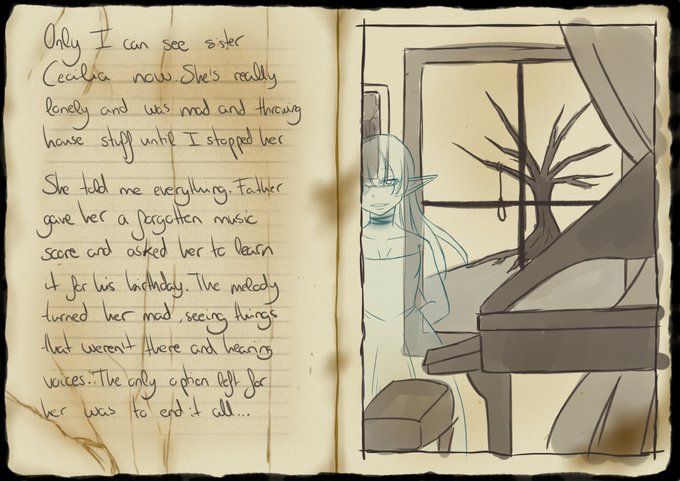 Only I can see sister
Cecilia now. She's really
lonely and was mad and throwing
house stuff until I stopped her
She told me everything. Father
gave her a forgotten music
score and asked her to learn
it for his birthday. The melody
turned her mad, seeing things
that weren't there and hearing
voices. The only option left for
her was to end it all...